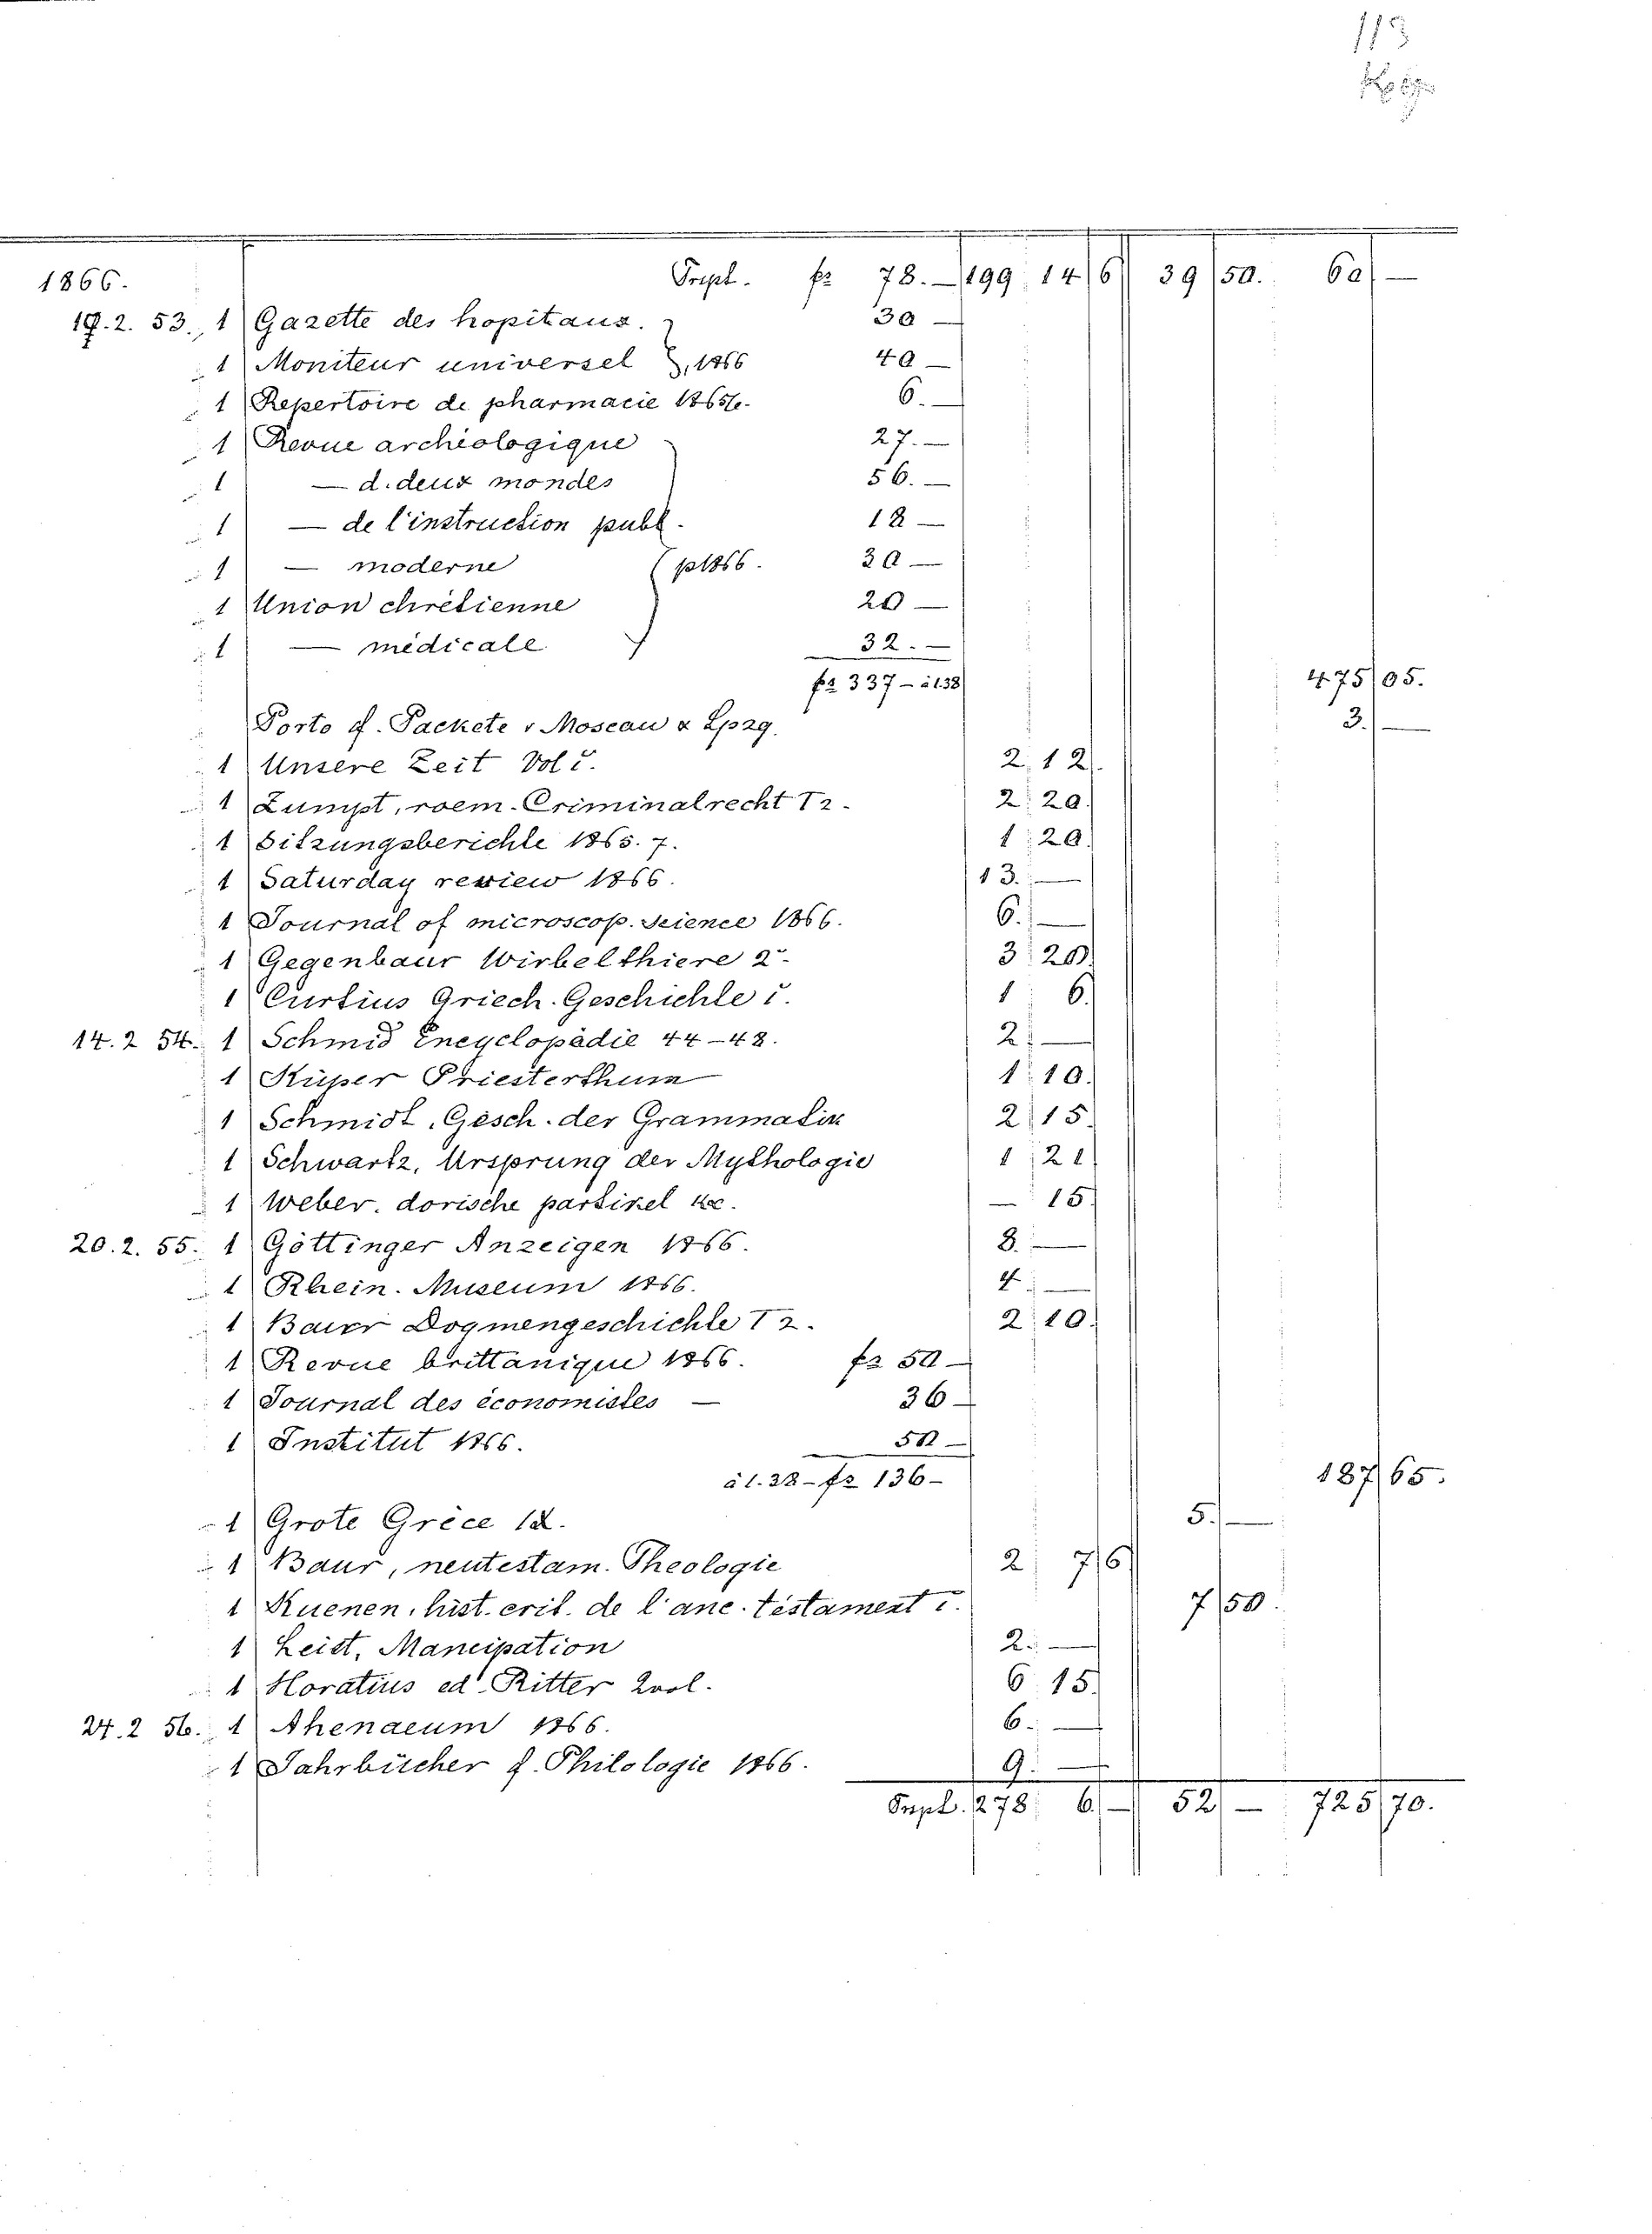 113
1866. Trspt. fr 78.— 199 14 6 39 50. 60 —
19.2. 53. 1 Gazette des hopitaux. 30 —
1 Moniteur universel 1866 40 —
1 Repertoire de pharmacie 1865/6. 6.—
1 Revue archéologique 27.—
1 — d. deux mondes 56.—
1 — de l'instruction publ. 18 —
1 — moderne p1866. 30 —
1 Union chrétienne 20 —
1 — médicale 32.—
fr 337 — à 1.38 475 05.
Porto f. Packete v Moscau & Lpzg. 3. —
1 Unsere Zeit Vol i. 2. 12.
1 Zumpt, roem. Criminalrecht T2. 2. 20.
1 Sitzungsberichte 1865. 7. 1. 20.
1 Saturday review 1866. 13. —
1 Journal of microscop. Science 1866. 6. —
1 Gegenbaur Wirbelthiere 2. 3. 20.
1 Curtius Griech. Geschichte i. 1 6.
14.2 54. 1 Schmid Encyclopädie 44–48. 2. —
1 Küper Priesterthum 1. 10.
1 Schmidt, Gesch. der Grammatik 2 15.
1 Schwartz, Ursprung der Mythologie 1 21
1 Weber. dorische partikel &c. — 15.
20.2. 55. 1 Göttinger Anzeigen 1866. 8. —
1 Rhein. Museum 1866. 4. —
1 Baur Dogmengeschichte T2. 2. 10.
1 Revue brittanique 1866. fr 50 —
1 Journal des économistes — 36 —
1 Institut 1866. 50 —
à 1.38 — fr 136 — 187 65.
1 Grote Grèce 12. 5. —
1 Baur, neutestam. Theologie 2 7 6
1 Kuenen, hist. crit. de l'anc. testament i. 7 50.
1 Leist, Mancipation 2. —
1 Horatius ed. Ritter 2vol. 6 15.
24.2 56. 1 Athenaeum 1866. 6. —
1 Jahrbücher f. Philologie 1866. 9. —
Trspt. 278 6. — 52 — 725 70.